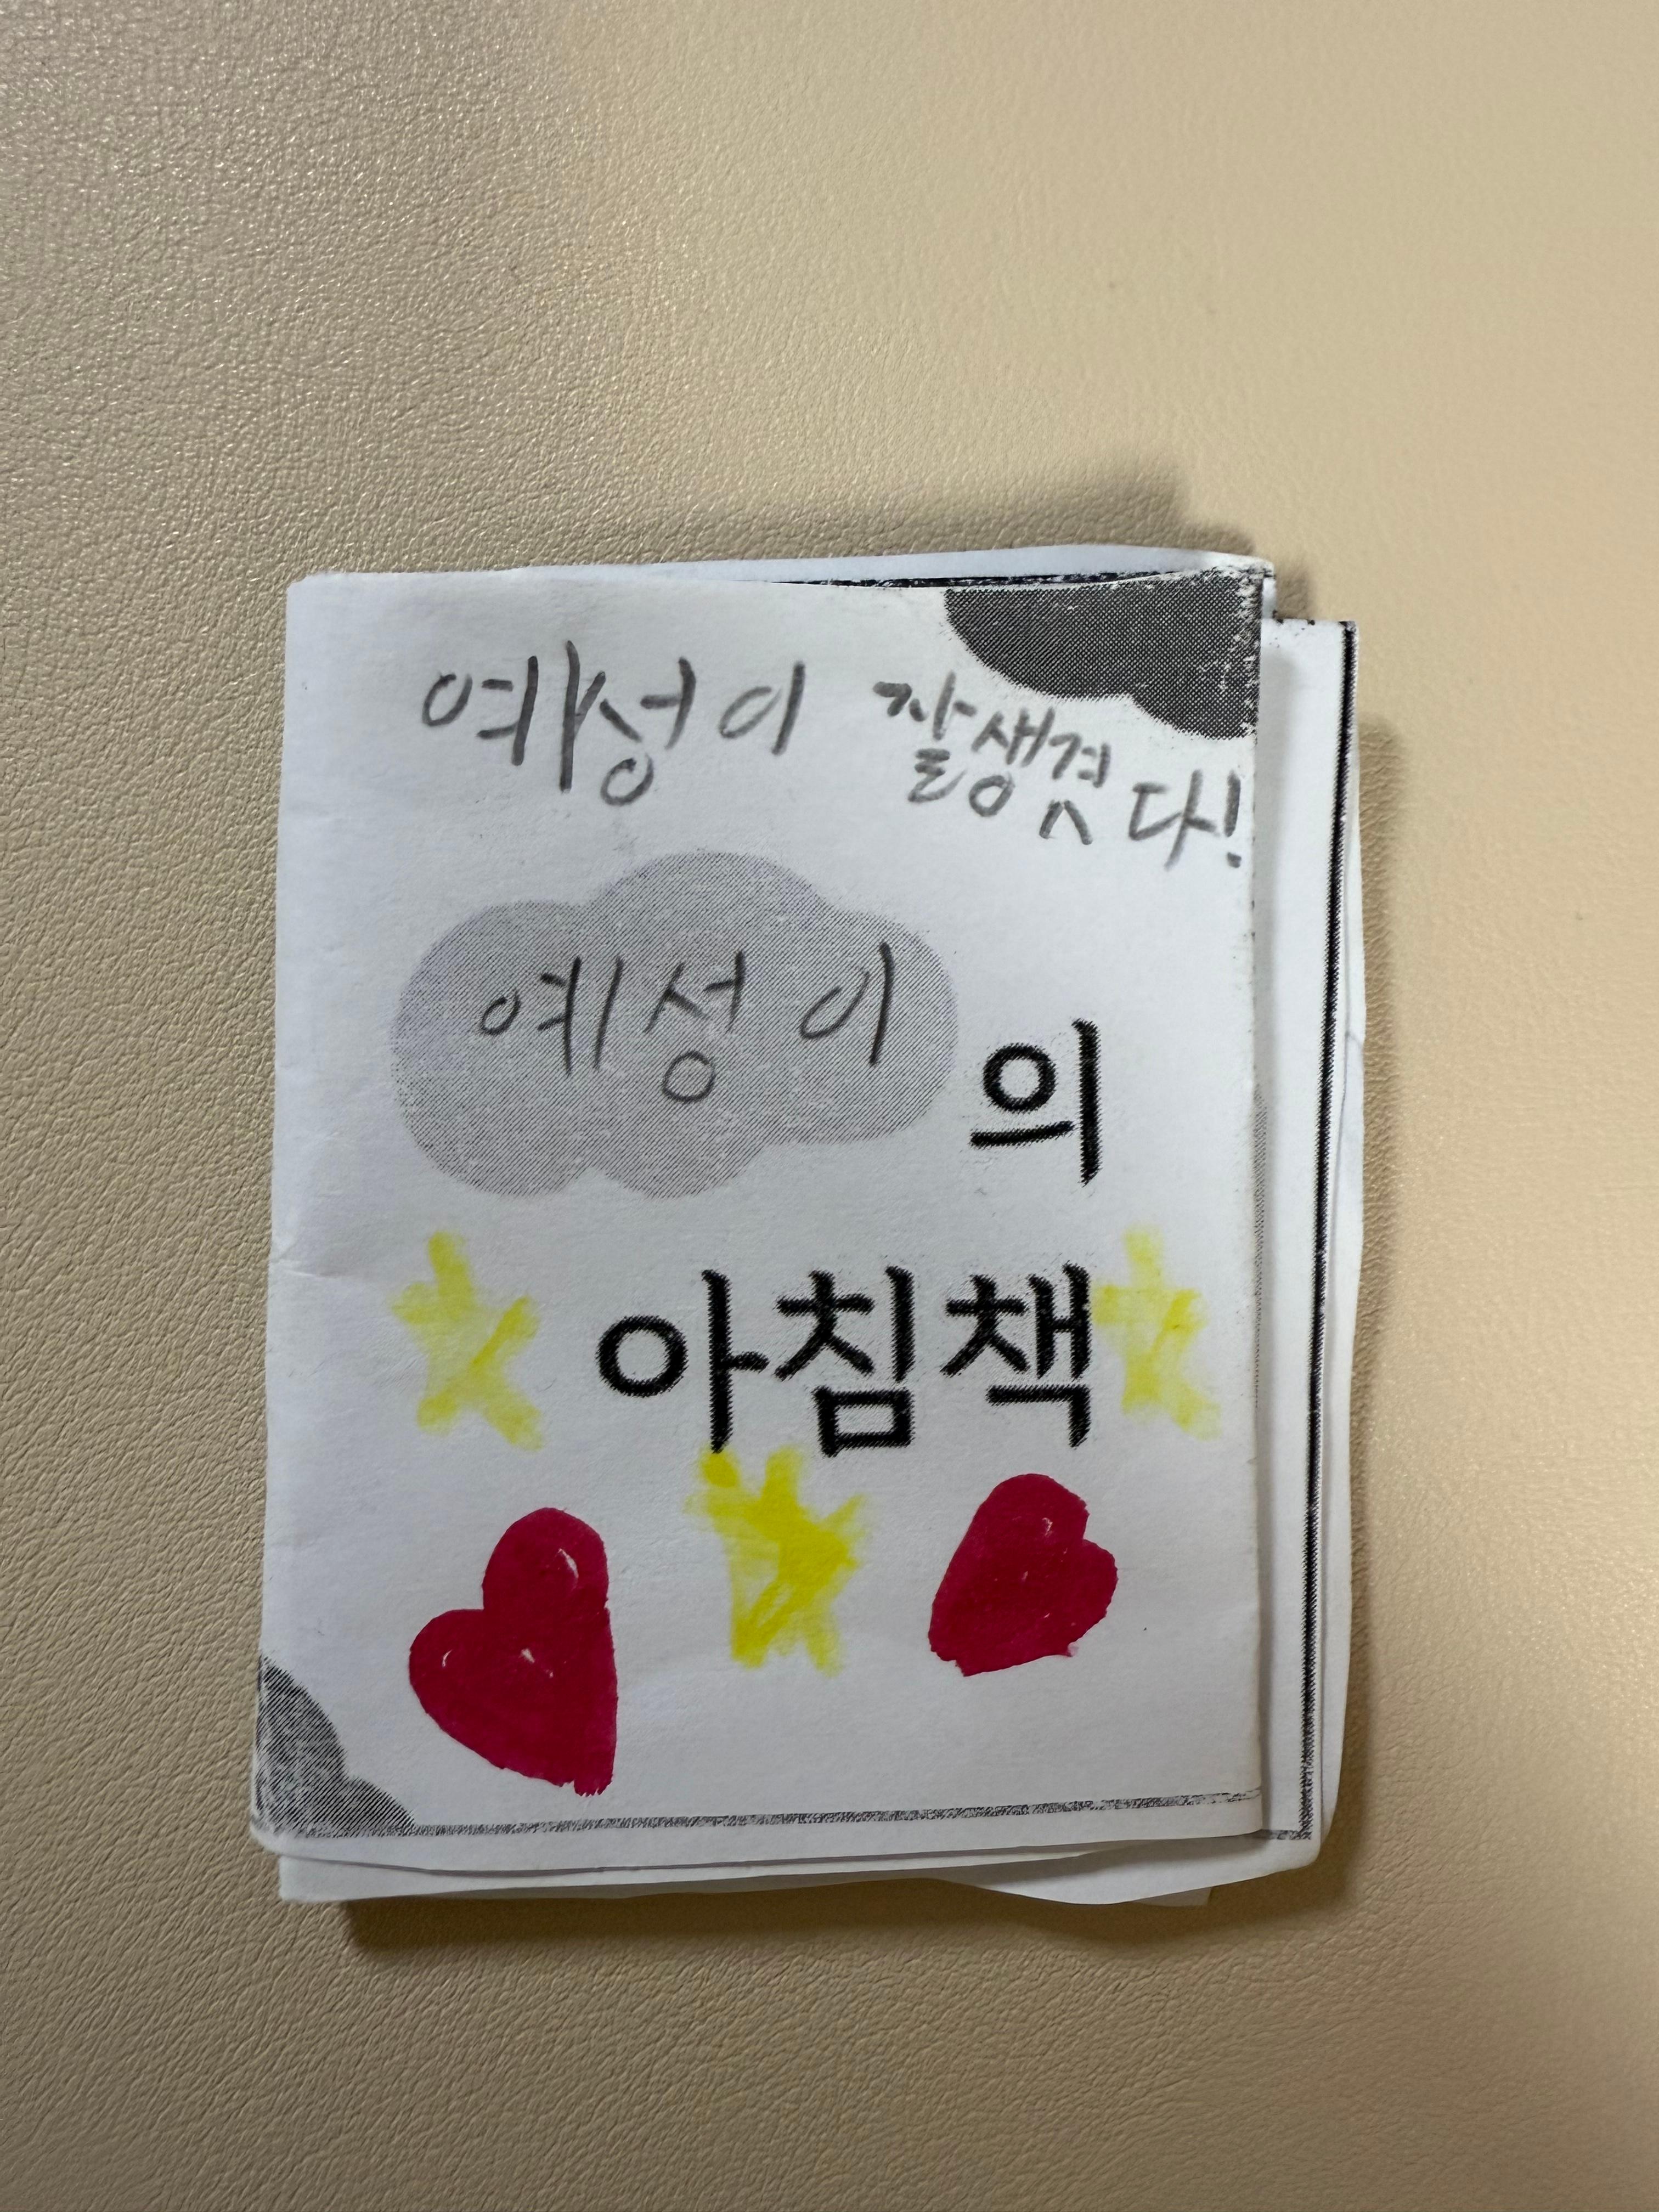 예성이 잘생겼다!
예성이의
아침책